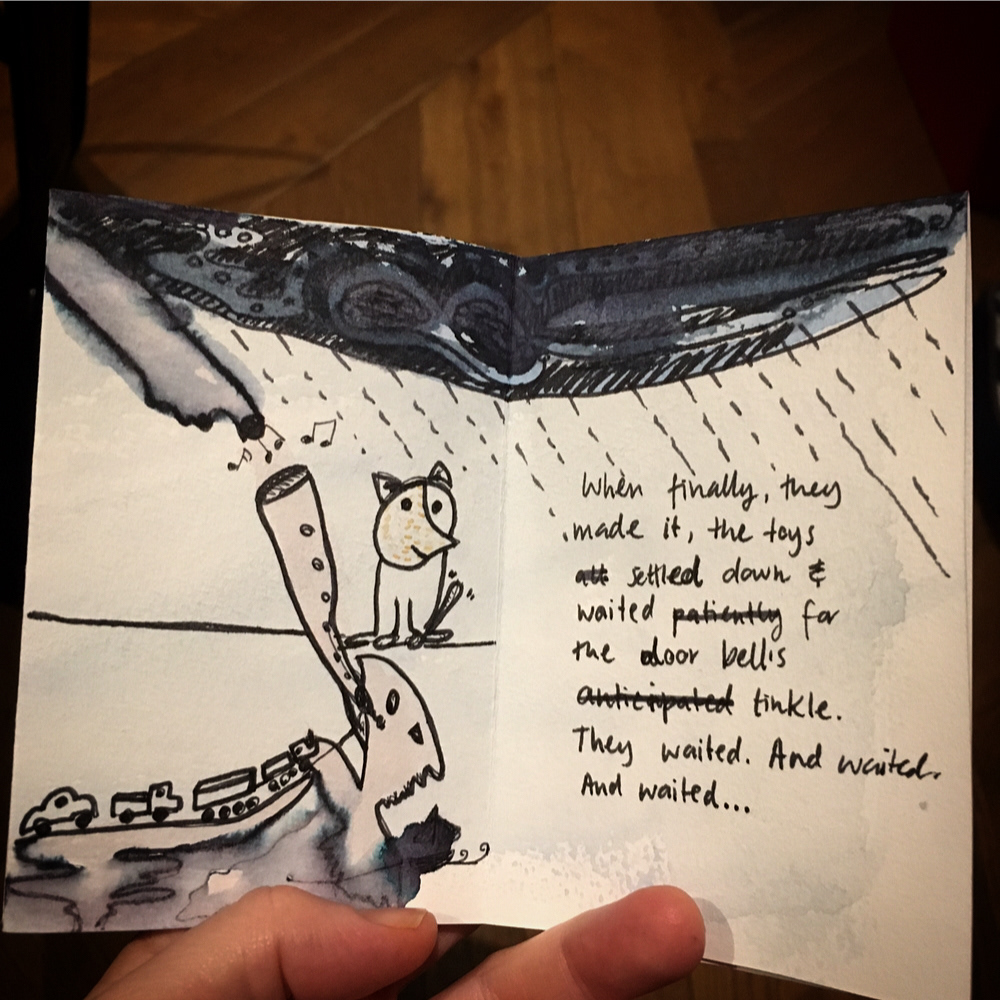 When finally, they
made it, the toys
all settled down &
waited patiently for
the door bell's
anticipated tinkle.
They waited. And waited.
And waited...